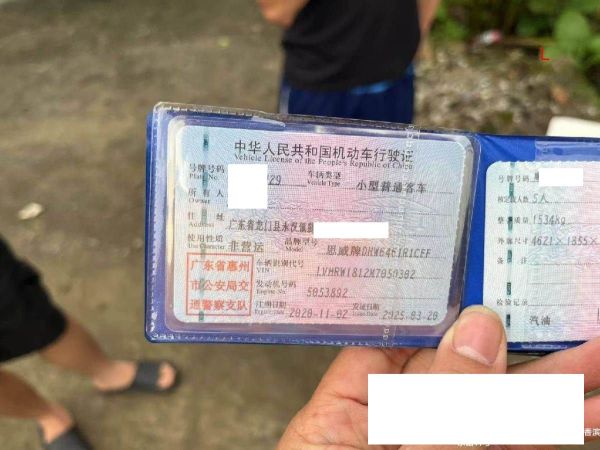 中华人民共和国机动车行驶证
Vehicle License of the People's Republic of China
号牌号码 29 车辆类型 小型普通客车
Plate No. Vehicle Type
所有人
Owner
住址 广东省龙门县永汉镇
Address
使用性质 非营运 品牌型号 思威牌DHW6461R1CEF
Use Character
广东省惠州
市公安局交
通警察支队
车辆识别代号
VIN
发动机号码 5053892
Engine No.
注册日期 2020-11-02 发证日期 2025-03-20
Issue Date
号牌号码
核定载人数 5人
整备质量 1534kg
外廓尺寸 4621×1855×
备注
检验记录
汽油
L